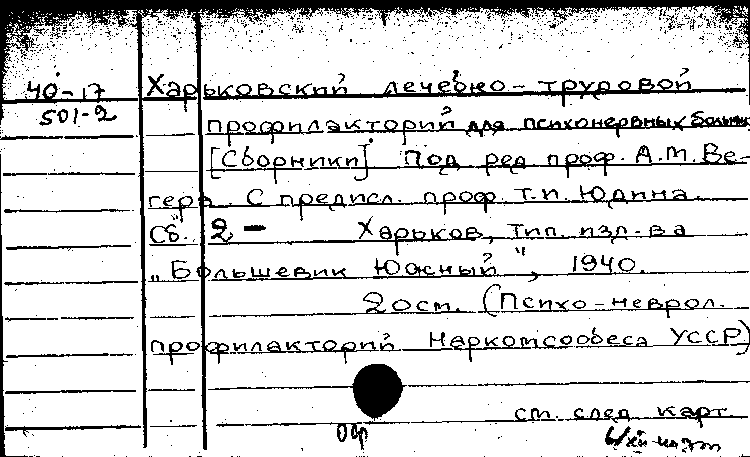 40-17 Харьковский лечебно-трудовой
501-2
профилакторий для психонервных больных
[Сборники]. Под ред проф. А.М. Ве-
гера. С предисл. проф. Т.И. Юдина.
Сб. 2 — Харьков, Тип. изд-ва
„Большевик Южный", 1940.
2 ост. (Психо-неврол.
профилакторий Наркомсобеса УССР)
ст. след карт
Оф